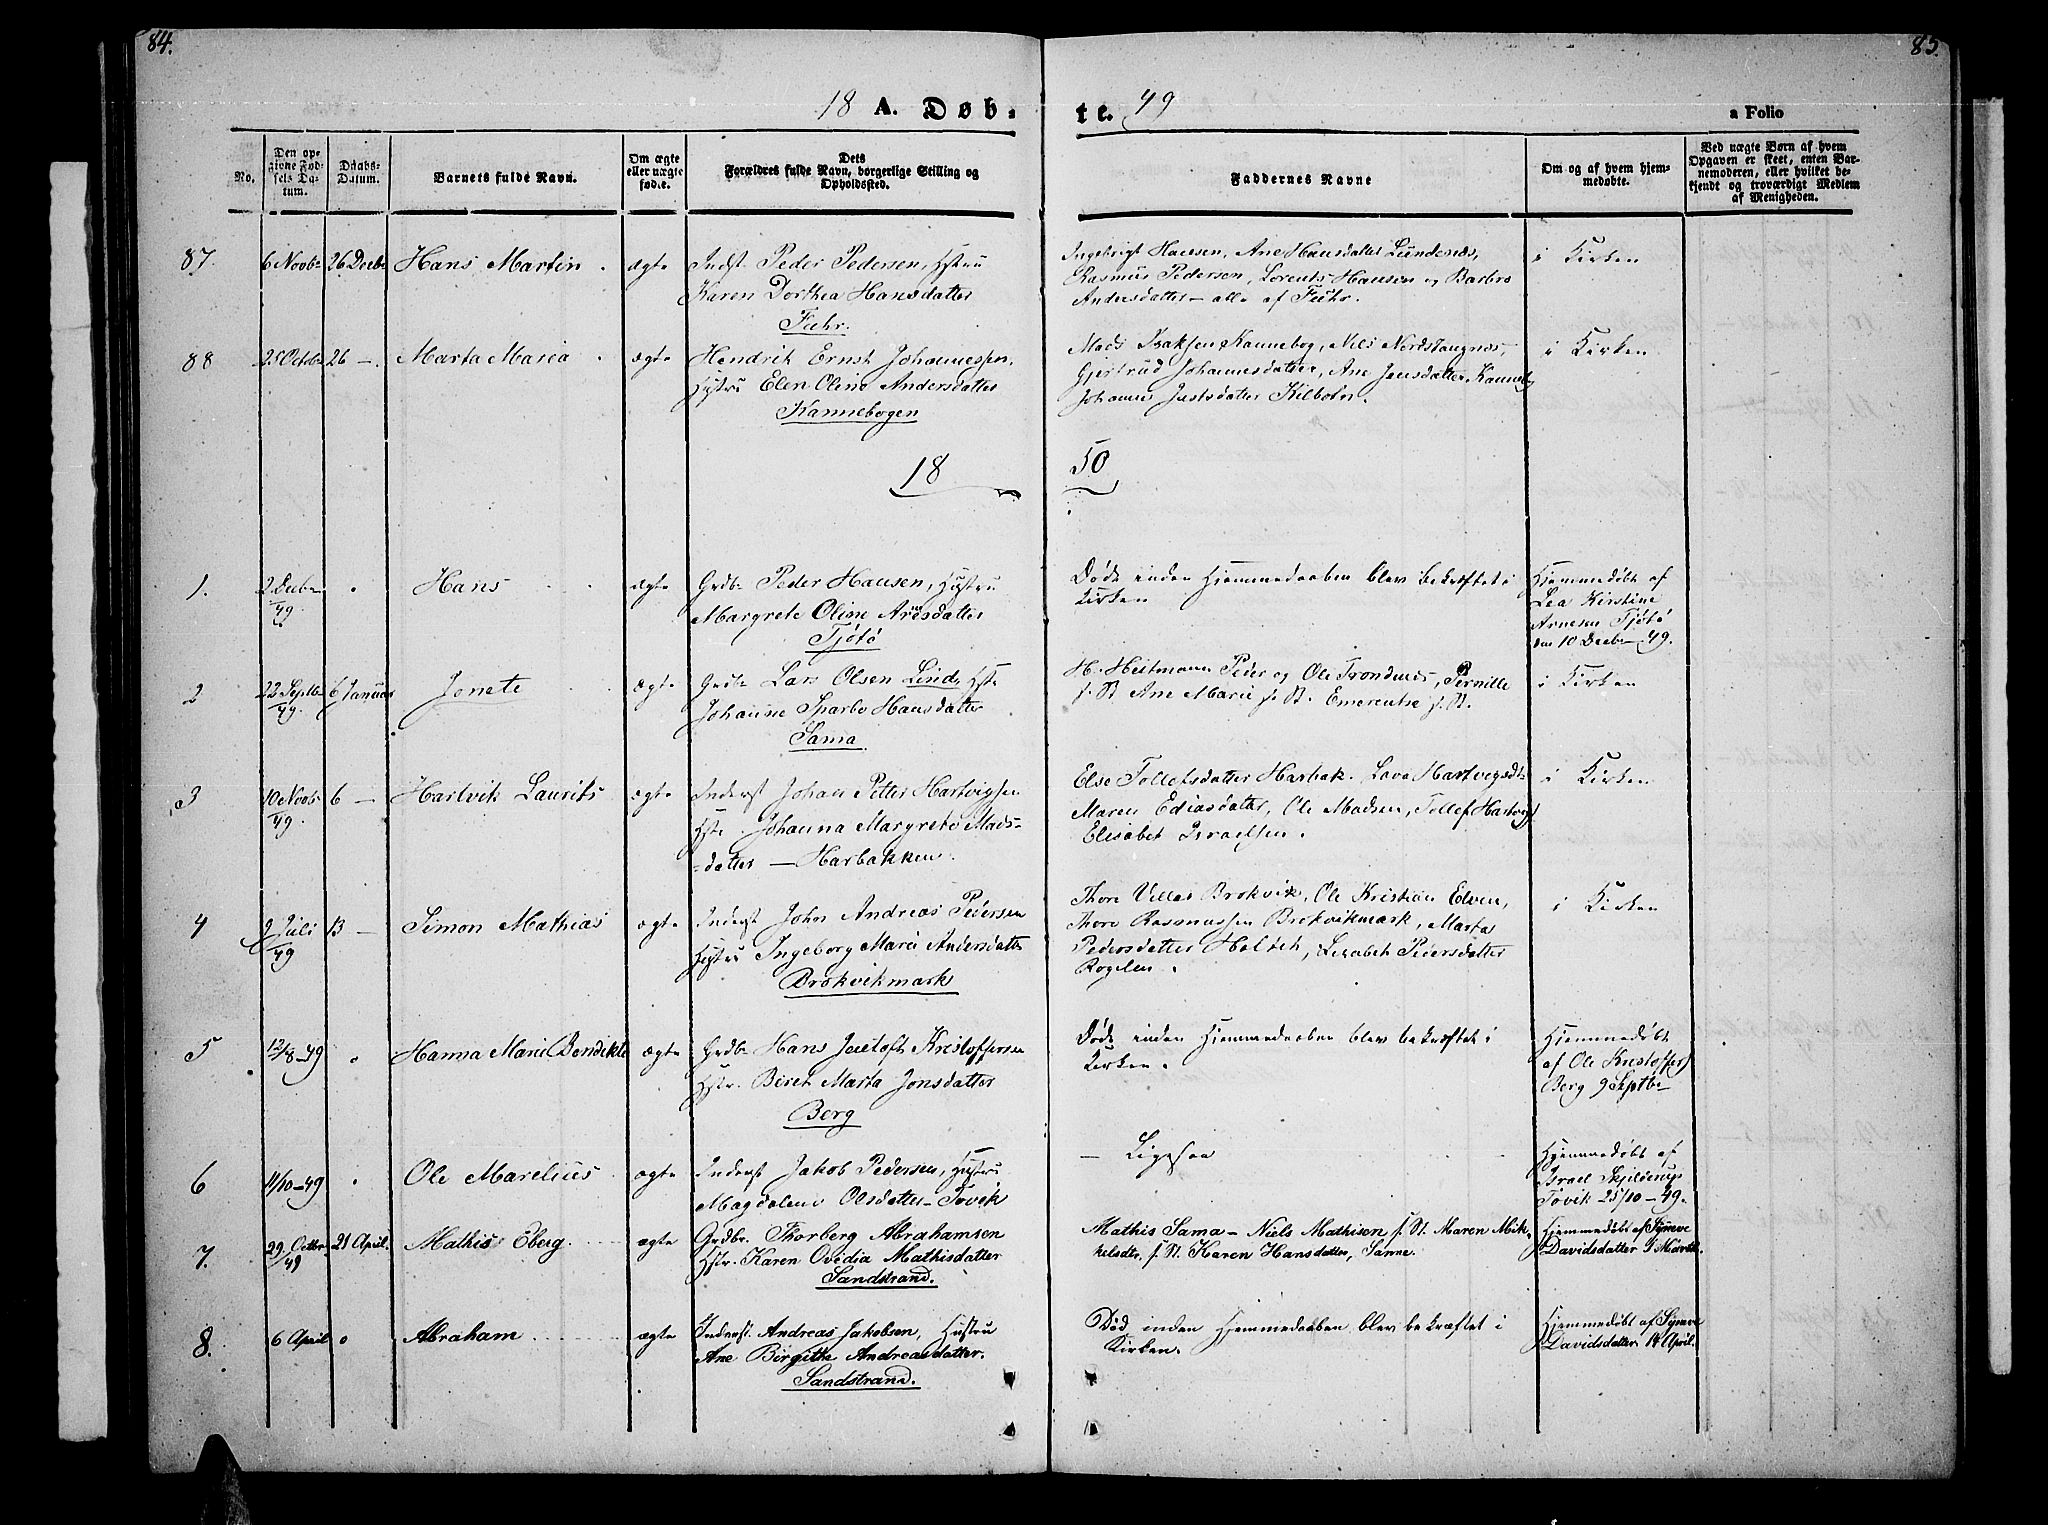 84.
85.
18 A. Døb-
te. 49
a Folio
No.
Den op-
givne Fød-
sels Da-
tum.
Daabs-
Datum.
Barnets fulde Navn.
Om ægte
eller uægte
fødte.
Dets
Forældres fulde Navn, borgerlige Stilling og
Opholdssted.
Faddernes Navne
Om og af hvem hjem-
medøbte.
Ved uægte Børn af hvem
Opgaven er skeet, enten Bar-
nemoderen, eller hvilket be-
kjendt og troværdigt Medlem
af Menigheden.
87. 6 Novb. 26 Decb. Hans Martin ægte Indst. Peder Pedersen, Hstru
Karen Dorthea Hansdatter
Fuhr.
Ingebrigt Hansen, Ane Hansdatter Lundenæs,
Rasmus Pedersen, Lorents Hansen og Barbro
Andersdatter - alle af Fuhr.
i Kirken
88 25 Octob 26 - Marta Maria ægte Hendrik Ernst Johannessen,
Hstru Elen Oline Andersdatter
Kannebogen
Mads Isaksen Kannebog, Nils Nordstangnes,
Gjertrud Johannesdatter, Ane Jensdatter Kanneb.
Johanna Justsdatter Kilbotn.
i Kirken
18 50
1. 2 Decbr 49 Hans ægte Grdbr Peder Hansen, Hustru
Margrete Oline Arnesdatter
Tjötö
Døde inden Hjemmedaaben blev bekræftet i
Kirken
Hjemmedøbt af
Lea Kirstine
Arnesen Tjötö
den 10 Decbr - 49.
2 22 Septbr 49. 6 Januar Jonete ægte Grdbr Lars Olsen Lind, Hstr
Johanne Sparbo Hansdatter
Sama
H. Heitmann Peder og Ole Trondenæs, Pernille
s. St. Ane Marie s. St. Emerentse s. St.
i Kirken
3 10 Novb. 49. 6 - Hartvik Laurits ægte Inderst Johan Petter Hartvigsen
Hstr. Johanna Margrete Mads-
-datter - Harbakken.
Else Tollefsdatter Harbak. Lava Hartvigsdtr
Maren Ediasdatter, Ole Madsen, Tollef Hartvigs
Elisabet Israelsen.
i Kirken
4 9 Juli 49 13 - Simon Mathias ægte Inderst John Andreas Pedersen
Hstru Ingeborg Marie Andersdatter
Brokvikmark
Thore Villas Brokvik, Ole Kristian Elven,
Thore Rasmussen Brokvikmark, Marta
Pedersdatter Holteh, Lisabet Pedersdatter
Rogelen.
i Kirken
5 12/8-49 Hanna Marie Bendikte ægte Grdbr Hans Justoft Kristoffersen
Hstr. Beret Marta Jonsdatter
Berg
Døde inden Hjemmedaaben blev bekræftet i
Kirken.
Hjemmedøbt
af Ole Kristoffers
Berg 9 Septbr
6 11/10-49 Ole Marelius ægte Inderst Jakob Pedersen, Hustru
Magdalene Olsdatter - Tovik
- Ligesaa
Hjemmedøbt af
Israel Skjelderup
Tovik 25/10-49.
7. 29 Octbr. 49 21 April. Mathis Eberg ægte Grdbr. Thorberg Abrahamsen
Hstr. Karen Ovidia Mathisdatter
Sandstrand.
Mathis Sama - Niels Mathisen s. St. Maren Mik-
kelsdtr. s. St. Karen Hansdatter, Same.
Hjemmedøbt af Synnve
Davidsdatter
8. 6 April Abraham ægte Inderst. Andreas Jakobsen, Hustru
Ane Birgitte Andreasdatter.
Sandstrand.
Død inden Hjemmedaaben blev bekræftet i
Kirken.
Hjemmedøbt af Synnve
Davidsdatter 14 April.